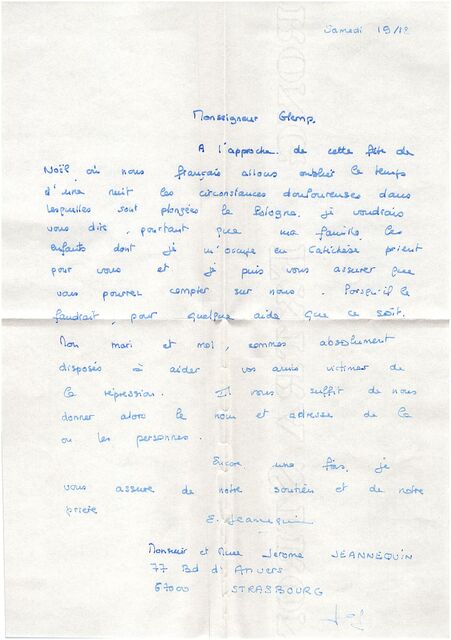 Samedi 19/12
Monseigneur Glemp,
A l'approche de cette fête de
Noël où nous français allons oublier le temps
d'une nuit les circonstances douloureuses dans
lesquelles sont plongées la Pologne, je voudrais
vous dire, pourtant que ma famille, les
enfants dont je m'occupe en catéchèse prient
pour vous et je puis vous assurer que
vous pourrez compter sur nous. Lorsqu'il le
faudrait, pour quelque aide que ce soit.
Mon mari et moi, sommes absolument
disposés à aider vos amis victimes de
la répression. Il vous suffit de nous
donner alors le nom et adresse de la
ou les personnes.
Encore une fois, je
vous assure de notre soutien et de notre
prière
E. Jeannequin
Monsieur et Mme Jerome JEANNEQUIN
77 Bd d'Anvers
67000 STRASBOURG